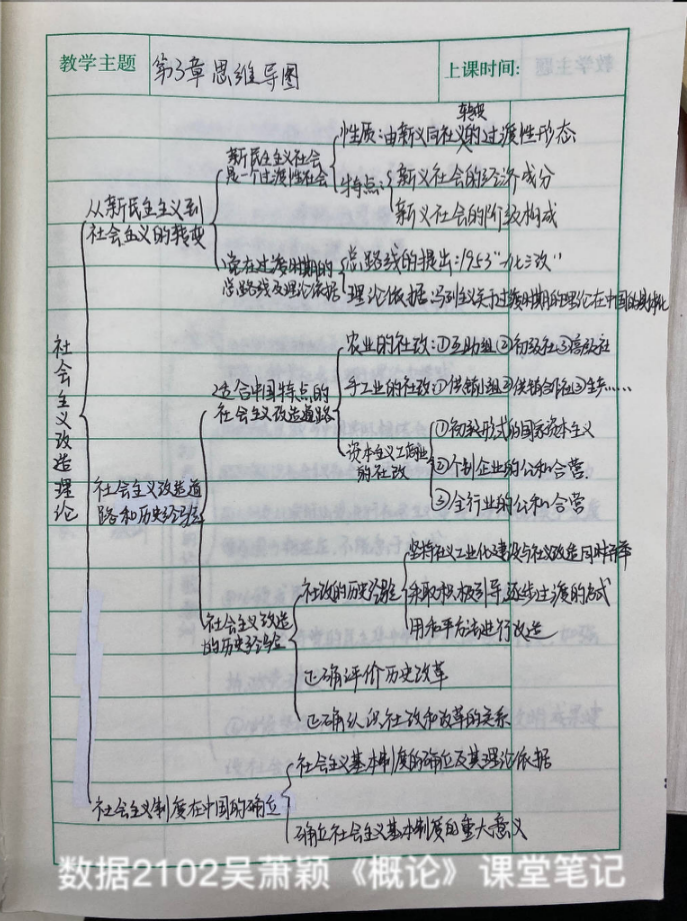 教学主题
第3章思维导图
上课时间:
社会主义改造理论
从新民主主义到
社会主义的转变
新民主主义社会
是一个过渡性社会
性质:由新义向社义转变的过渡性形态
特点:
新义社会的经济成分
新义社会的阶级构成
党在过渡时期的
总路线及理论依据
总路线的提出:1953"一化三改"
理论依据:马列主义关于过渡时期的理论在中国的具体化
社会主义改造道
路和历史经验
适合中国特点的
社会主义改造道路
农业的社改:①互助组②初级社③高级社
手工业的社改:①供销小组②供销合作社③生产……
资本主义工商业
的社改
①初级形式的国家资本主义
②个别企业的公私合营.
③全行业的公私合营
社会主义改造
的历史经验
社改的历史经验
坚持社义工业化建设与社改造同时并举
采取积极引导、逐步过渡的方式
用和平方法进行改造
正确评价历史改革
正确认识社改和改革的关系
社会主义制度在中国的确立
社会主义基本制度的确立及其理论依据
确立社会主义基本制度的重大意义
数据2102吴萧颖《概论》课堂笔记